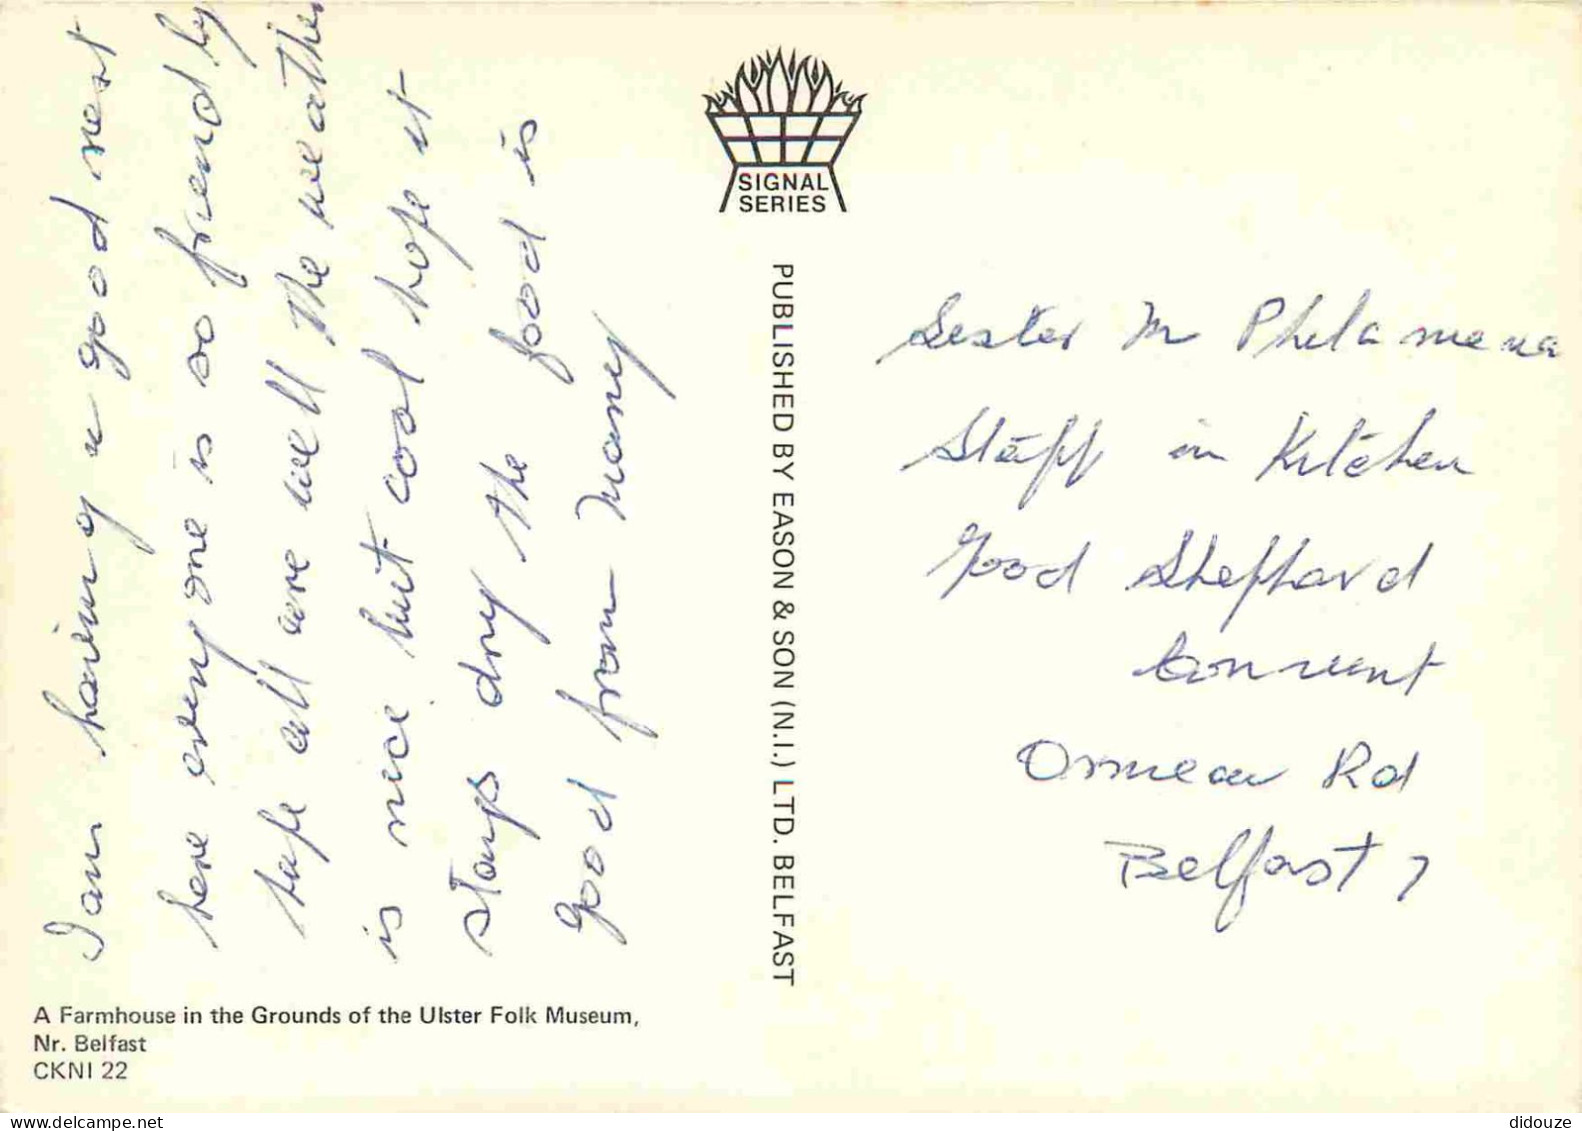 I am having a good rest
here everyone is so friendly
hope all are well The weather
is nice but cool hope it
stays dry the food is
good from Mary
SIGNAL
SERIES
PUBLISHED BY EASON & SON (N.I.) LTD. BELFAST
Sester M Philamena
Staff in Kitchen
Good Shephard
Convent
Ormeau Rd
Belfast 7
A Farmhouse in the Grounds of the Ulster Folk Museum,
Nr. Belfast
CKNI 22
delcampe.net
didouze